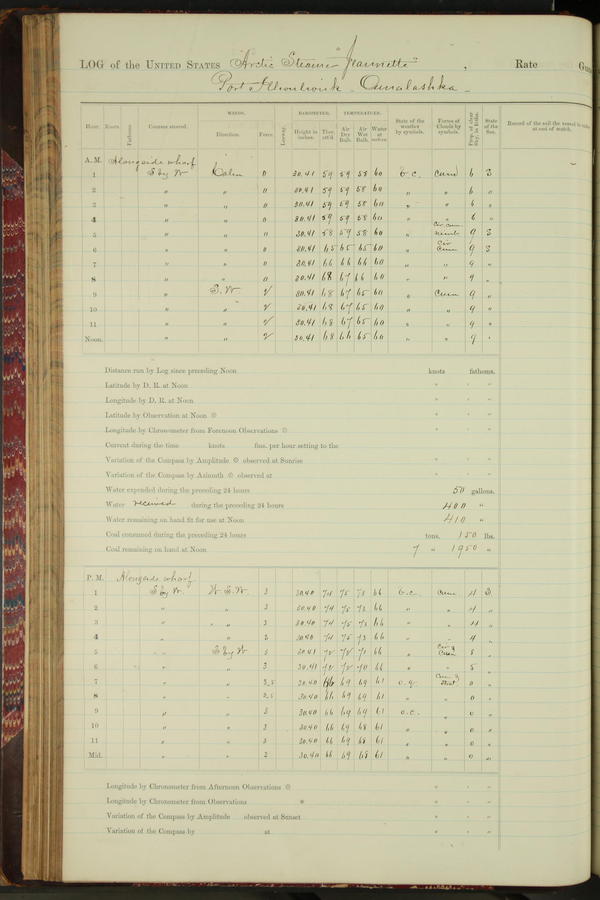 LOG of the UNITED STATES "Arctic Steamer" Jeannette", Rate
Port Illoulouk - Ounalashka -
Hour. Knots. Fathoms. Courses steered. WINDS. Direction. Force. Leeway. BAROMETER. Height in inches. Ther. att'd. TEMPERATURE. Air Dry Bulb. Air Wet Bulb. Water at surface. State of the weather by symbols. Forms of Clouds by symbols. State of the Sea. Record of the sail the vessel is under at end of watch.
A. M. Alongside wharf
1 S by W Calm 0 30.41 59 59 58 60 b.c. cum 6 3
2 " " 0 30.41 59 59 58 60 " " 6 "
3 " " 0 30.41 59 59 58 60 " " 6 "
4 " " 0 30.41 59 59 58 60 " " 6 "
5 " " 0 30.41 58 59 58 60 " Cir cum nimb 9 3
6 " " 0 30.41 65 65 65 60 " Cir Cum 9 3
7 " " 0 30.41 66 66 66 60 " " 9 "
8 " " 0 30.41 68 67 66 60 " " 9 "
9 " S. W. 2 30.41 68 67 65 60 " Cum 9 "
10 " " 2 30.41 68 67 65 60 " " 9 "
11 " " 2 30.41 68 67 65 60 " " 9 "
Noon. " " 2 30.41 68 66 65 60 " " 9
Distance run by Log since preceding Noon knots fathoms.
Latitude by D. R. at Noon ° ' "
Longitude by D. R. at Noon ° ' "
Latitude by Observation at Noon ° ' "
Longitude by Chronometer from Forenoon Observations ° ' "
Current during the time knots fms. per hour setting to the
Variation of the Compass by Amplitude observed at Sunrise ° ' "
Variation of the Compass by Azimuth observed at ° ' "
Water expended during the preceding 24 hours 50 gallons.
Water received during the preceding 24 hours 400 "
Water remaining on hand fit for use at Noon 410 "
Coal consumed during the preceding 24 hours tons. 150 lbs.
Coal remaining on hand at Noon 7 " 1950 "
P. M. Alongside wharf
1 S by W. W. S. W. 3 30.40 74 75 73 66 b.c. cum 4 3
2 " " 3 30.40 74 75 73 66 " " 4 "
3 " " " 3 30.40 74 75 73 66 " " 4 "
4 " " 3 30.40 74 75 73 66 " " 4 "
5 " S by W 3 30.41 72 72 71 66 " Cir & Cum 5 "
6 " " 3 30.41 72 72 70 66 " " 5 "
7 " " 3.5 30.40 66 69 69 61 o.g. Cum & Strat 0 "
8 " " 2.5 30.40 66 69 69 61 " " 0 "
9 " " 3 30.40 66 69 69 61 o.c. " 0 "
10 " " 3 30.40 66 69 68 61 " " 0 "
11 " " 3 30.40 66 69 68 61 " " 0 "
Mid. " " 3 30.40 66 69 68 61 " " 0 "
Longitude by Chronometer from Afternoon Observations ° ' "
Longitude by Chronometer from Observations ° ' "
Variation of the Compass by Amplitude observed at Sunset ° ' "
Variation of the Compass by at ° ' "